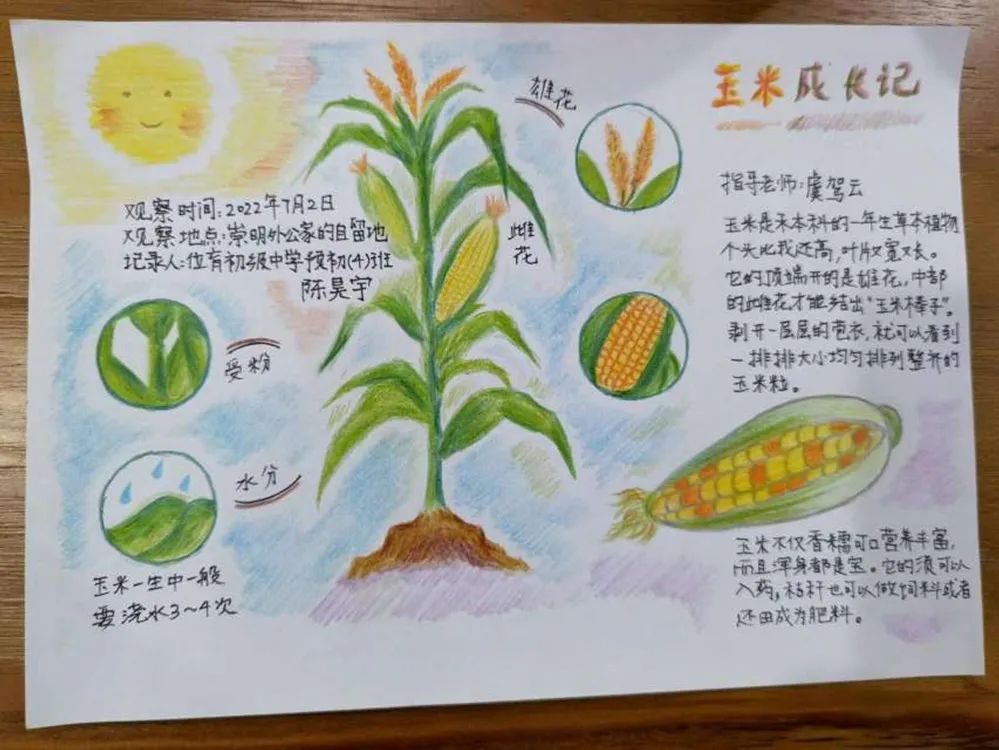 玉米成长记
指导老师:虞驾云
玉米是禾本科的一年生草本植物
个头比我还高,叶片宽又长。
它的顶端开的是雄花,中部
的雌花才能结出“玉米棒子”。
剥开一层层的苞衣,就可以看到
一排排大小均匀排列整齐的
玉米粒。
雄花
雌花
观察时间:2022年7月2日
观察地点:崇明外公家的自留地
记录人:位育初级中学预初(4)班
陈昊宇
受粉
水分
玉米一生中一般
要浇水3~4次
玉米不仅香糯可口营养丰富,
而且浑身都是宝。它的须可以
入药,秸秆也可以做饲料或者
还田成为肥料。